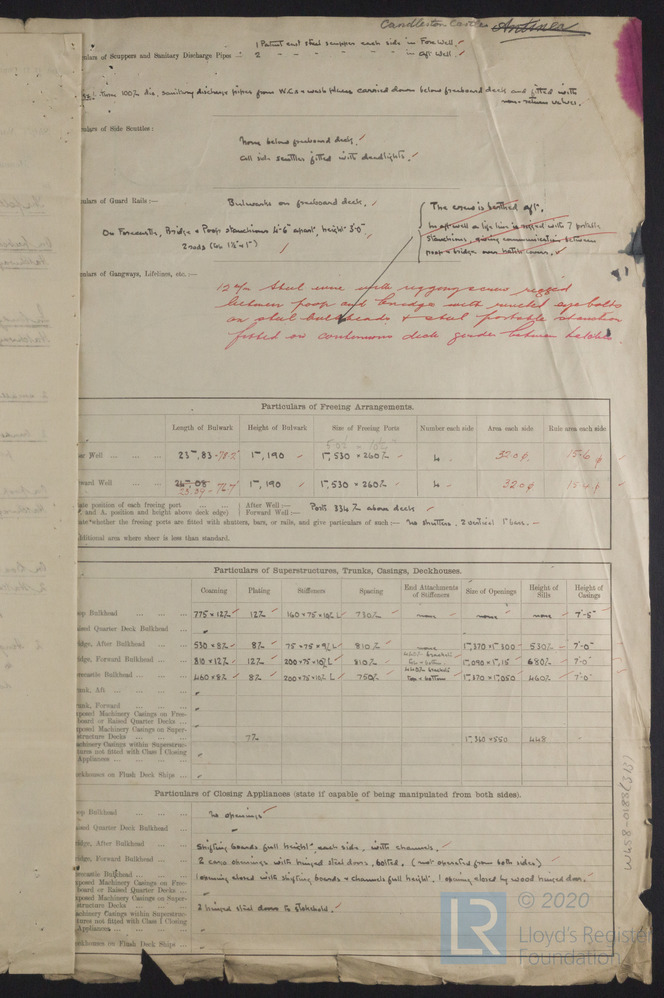 Candleston Castle Antinea
1 Patent cast steel scupper each side in Fore Well.
ulars of Scuppers and Sanitary Discharge Pipes ... 2 " " " " " in aft Well.
three 100% dia. sanitary discharge pipes from W.C.s & wash places carried down below freeboard deck and fitted with
non-return valves.
ulars of Side Scuttles :
None below freeboard deck.
All side scuttles fitted with deadlights.
ulars of Guard Rails :—
Bulwarks on freeboard deck.
On Forecastle, Bridge & Poop stanchions 4'-6" apart, height 3'-0"
2 rods
The crew is berthed aft.
In aft well a life line is rigged with 7 portable
stanchions, giving communication between
poop & bridge over hatch covers.
ulars of Gangways, Lifelines, etc. :—
12 m/m steel wire with rigging screws rigged
between poop and bridge with riveted eyebolts
on steel bulkheads & steel portable stanchions
fitted on continuous deck girder between hatches.
Particulars of Freeing Arrangements.
Length of Bulwark Height of Bulwark Size of Freeing Ports Number each side Area each side Rule area each side
Well ... 23m,83 1m,190 1m,530 × 260% 4 32.0 15.6
ward Well ... 1m,190 1m,530 × 260% 4 32.0 15.4
ate position of each freeing port ... After Well :—
and A. position and height above deck edge) Forward Well :— Ports 334% above deck
ate whether the freeing ports are fitted with shutters, bars, or rails, and give particulars of such :— No shutters, 2 vertical 1" bars.
dditional area where sheer is less than standard.
Particulars of Superstructures, Trunks, Casings, Deckhouses.
Coaming Plating Stiffeners Spacing End Attachments of Stiffeners Size of Openings Height of Sills Height of Casings
op Bulkhead ... 775 × 12% 12% 160 × 75 × 10% L 730% none none none 7'-5"
ised Quarter Deck Bulkhead ...
idge, After Bulkhead ... 530 × 8% 8% 75 × 75 × 9% L 810% none 1m,370 × 1m,300 530% 7'-0"
idge, Forward Bulkhead ... 810 × 12% 12% 200 × 75 × 10% L 810% 1m,090 × 1m,15 680% 7'-0"
recastle Bulkhead ... 460 × 8% 8% 200 × 75 × 10% L 750% 1m,370 × 1m,050 460% 7'-0"
unk, Aft ...
unk, Forward ...
xposed Machinery Casings on Free-
board or Raised Quarter Decks ...
xposed Machinery Casings on Super-
structure Decks ... 7% 1m,360 × 550 448
achinery Casings within Superstruc-
tures not fitted with Class I Closing
Appliances ...
eckhouses on Flush Deck Ships ...
Particulars of Closing Appliances (state if capable of being manipulated from both sides).
op Bulkhead ... No openings
ised Quarter Deck Bulkhead ...
idge, After Bulkhead ... Shifting boards full height each side, with channels.
idge, Forward Bulkhead ... 2 openings with hinged steel doors, bolted, (not operated from both sides)
recastle Bulkhead ... 1 opening closed with shifting boards & channels full height, 1 opening closed by wood hinged door.
xposed Machinery Casings on Free-
board or Raised Quarter Decks ...
xposed Machinery Casings on Super-
structure Decks ... 2 hinged steel doors to stokehold.
achinery Casings within Superstruc-
tures not fitted with Class I Closing
Appliances ...
eckhouses on Flush Deck Ships ...
W458-0188 (3/3)
LR © 2020
Lloyd's Register
Foundation